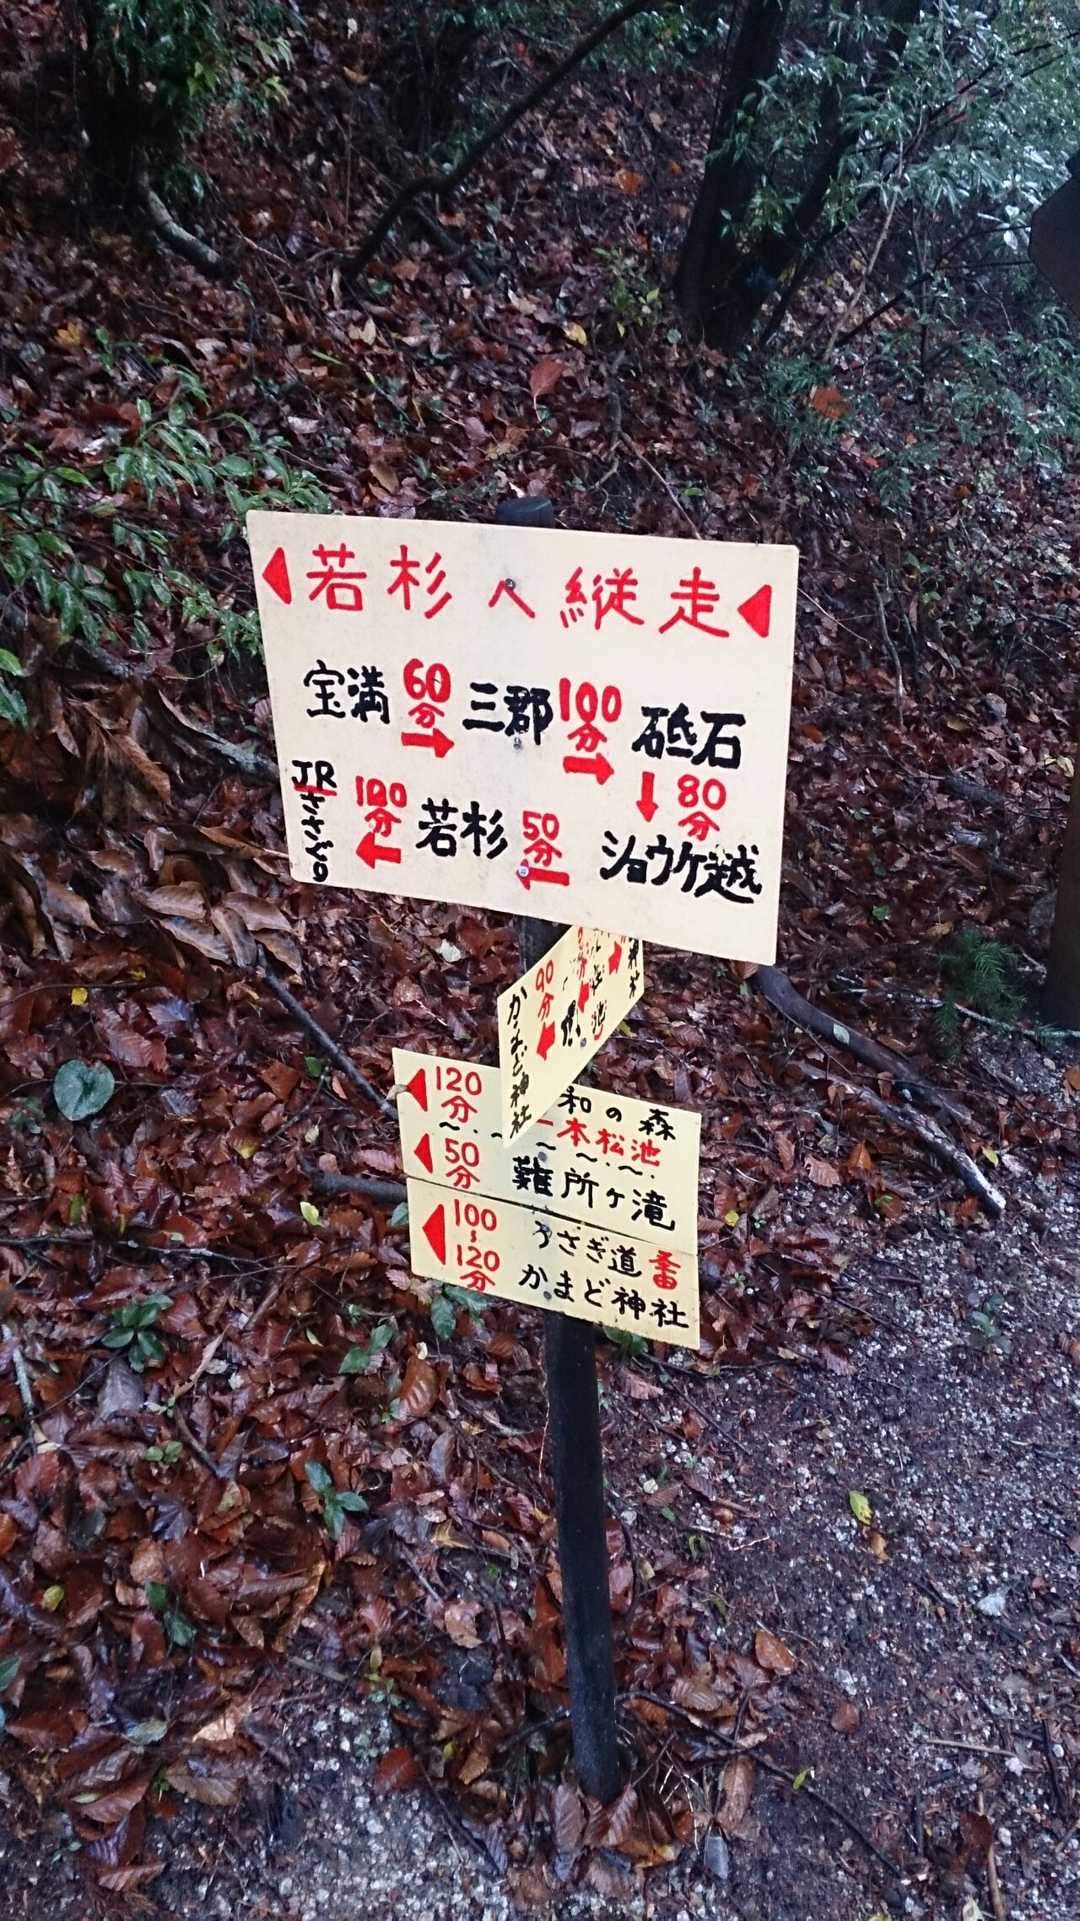 若杉へ縦走
宝満 60分 三郡 100分 砥石
80分
JRささぐり 100分 若杉 50分 ショウケ越
90分
かまど神社
120分 和の森
一本松池
50分 難所ヶ滝
100~120分 うさぎ道
かまど神社